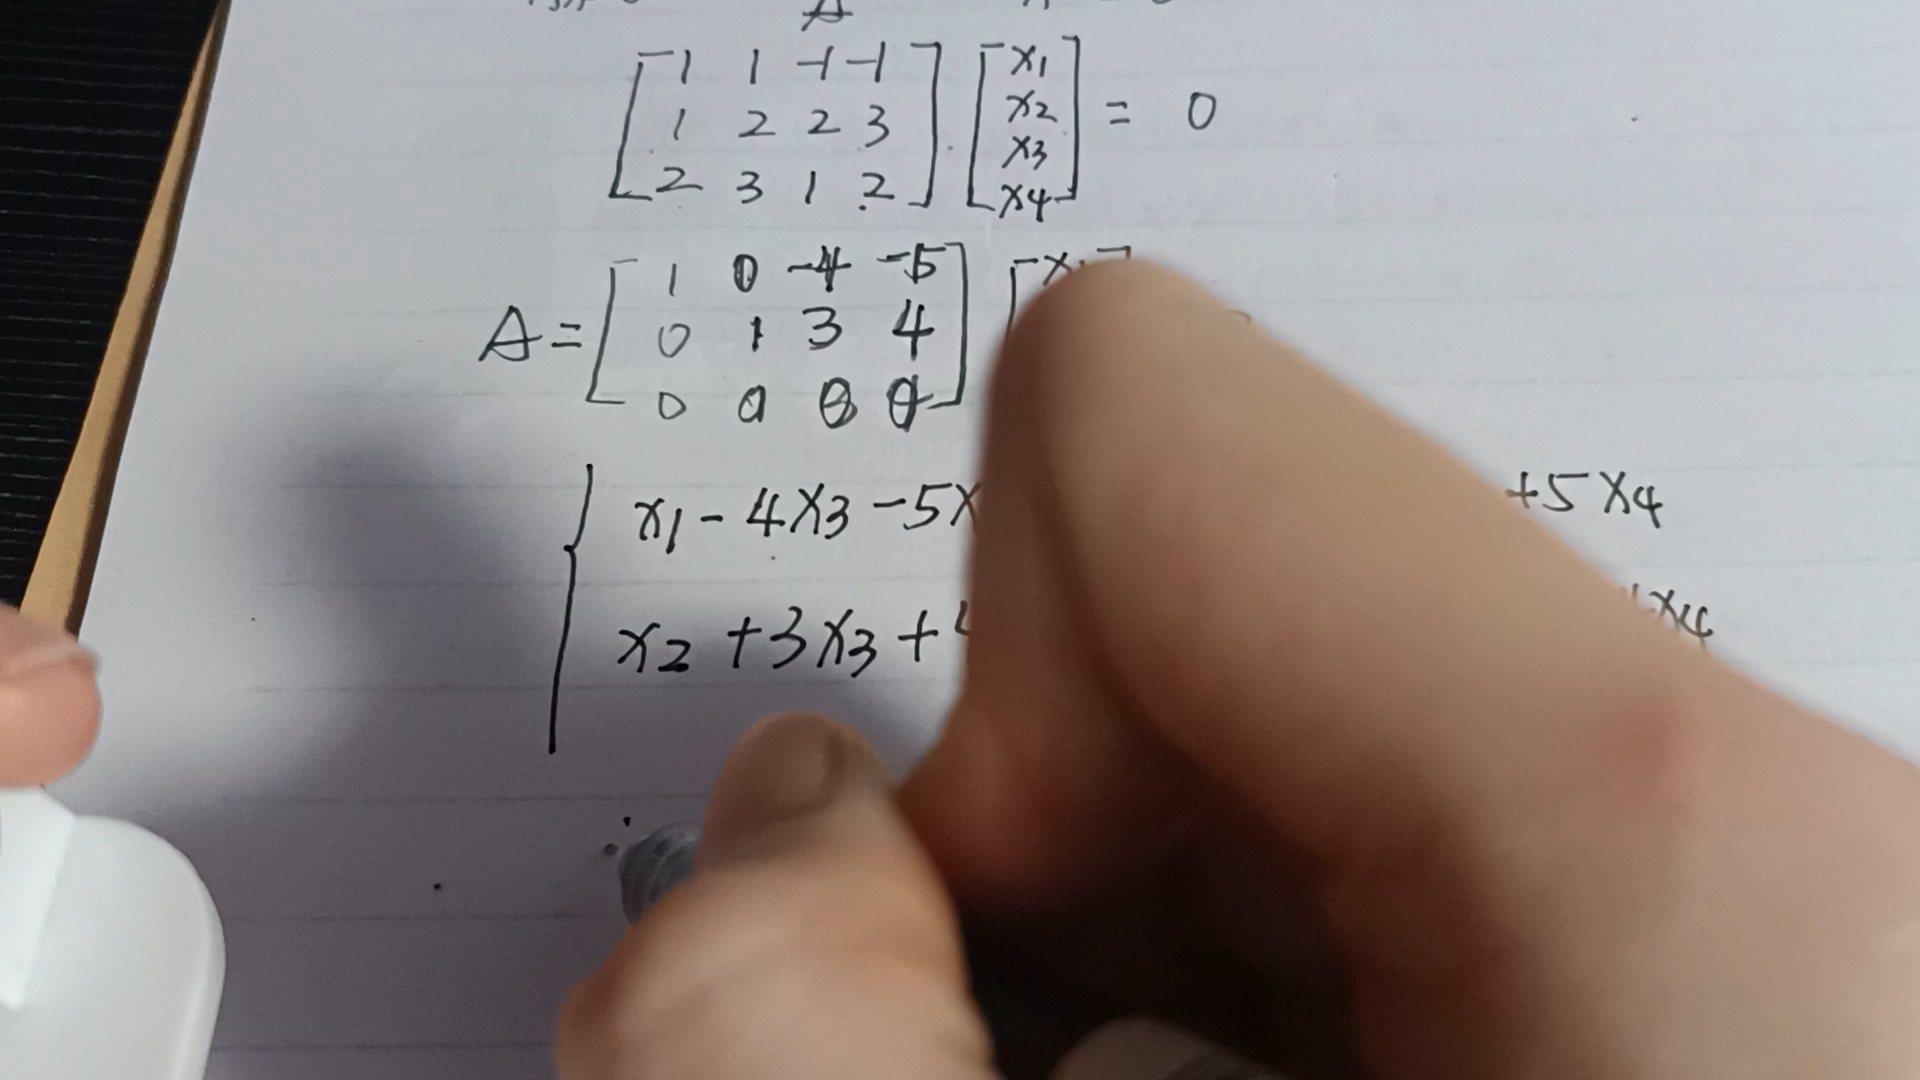 A
1 1 -1 -1 x1
1 2 2 3 x2 = 0
2 3 1 2 x3
x4
1 0 -4 -5
A = 0 1 3 4
0 0 0 0
x1 - 4x3 - 5x +5x4
x2 + 3x3 + x4